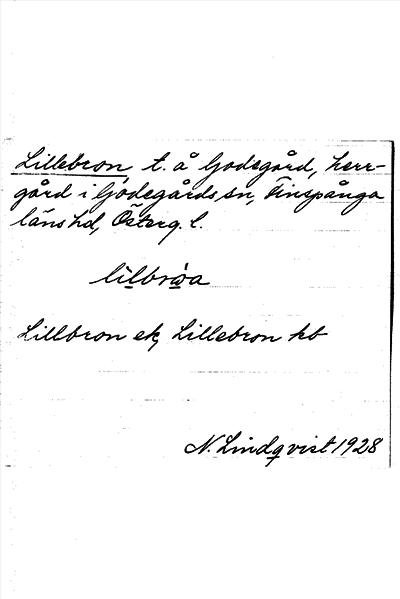 Lillebron t. å Godegård, herr-
gård i Godegårds sn, Finspånga
läns hd, Österg. l.
lìlbrὼa
Lillbron ek, Lillebron kb
N. Lindqvist 1928